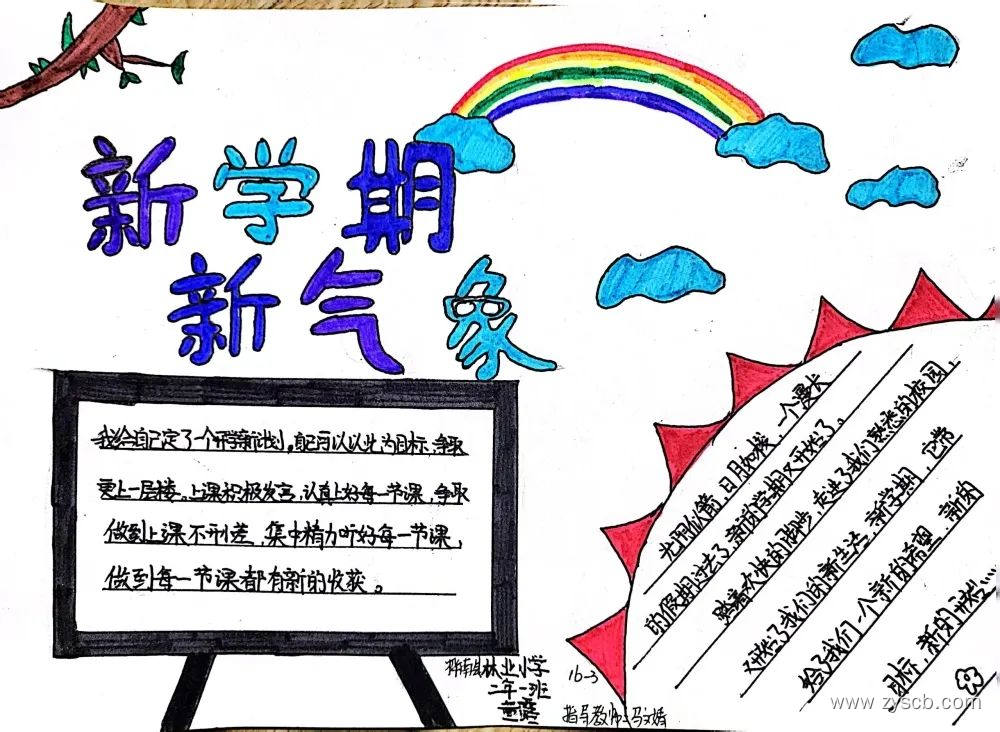 新学期
新气象
我给自己定了一个开学新计划。自己可以以此为目标,争取
更上一层楼。上课积极发言,认真上好每一节课,争取
做到上课不开小差,集中精力听好每一节课,
做到每一节课都有新的收获。
光阴似箭,日月如梭,一个漫长
的假期过去了,新的学期又开始了。
踏着欢快的脚步,走进了我们熟悉的校园,
又开始了我们的新生活,新学期,它带
给了我们一个新的希望,新的
目标,新的开始……
桦南县林业小学
二年一班
16-3
指导教师:马文婧
www.zyscb.com